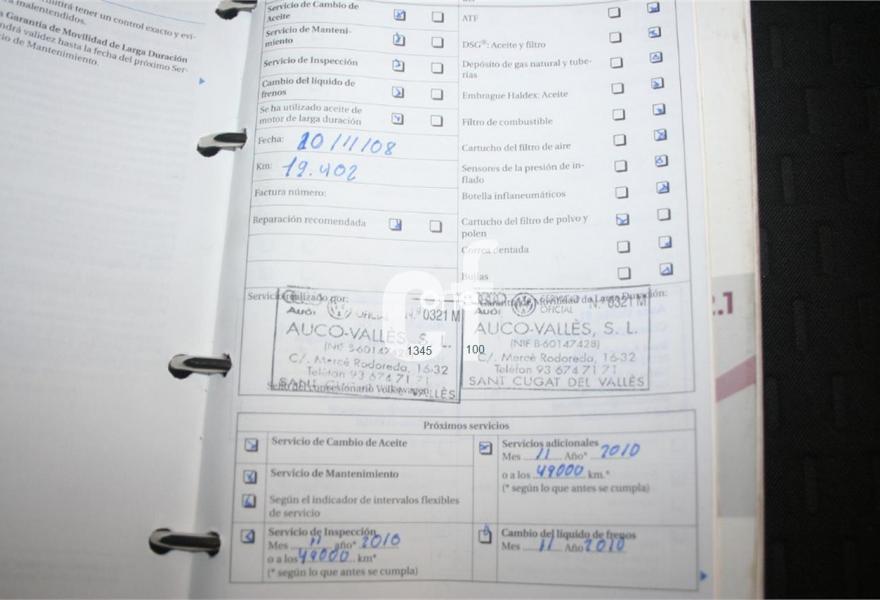 mitirá tener un control exacto y evi-
malentendidos.
Garantía de Movilidad de Larga Duración
ndrá validez hasta la fecha del próximo Ser-
cio de Mantenimiento.
Servicio de Cambio de
Aceite
Servicio de Manteni-
miento
Servicio de Inspección
Cambio del líquido de
frenos
Se ha utilizado aceite de
motor de larga duración
Fecha: 20/11/08
Km: 19.402
Factura número:
Reparación recomendada
ATF
DSG®: Aceite y filtro
Depósito de gas natural y tube-
rías
Embrague Haldex: Aceite
Filtro de combustible
Cartucho del filtro de aire
Sensores de la presión de in-
flado
Botella inflaneumáticos
Cartucho del filtro de polvo y
polen
Correa dentada
Bujías
Servicio realizado por:
Audi OFICIAL N.º 0321 M
AUCO-VALLÈS, S. L.
(NIF B-60147428)
C/. Mercè Rodoreda, 16-32
Teléfon 93 674 71 71
SANT CUGAT DEL VALLÈS
Sello del concesionario Volkswagen
Garantía de Movilidad de Larga Duración:
Audi SERVICIO OFICIAL N.º 0321 M
AUCO-VALLÈS, S. L.
(NIF B-60147428)
C/. Mercè Rodoreda, 16-32
Teléfon 93 674 71 71
SANT CUGAT DEL VALLÈS
1345 100
2.1
Próximos servicios
Servicio de Cambio de Aceite
Servicio de Mantenimiento
Según el indicador de intervalos flexibles
de servicio
Servicio de Inspección
Mes 11 año* 2010
o a los 49000 km*
(* según lo que antes se cumpla)
Servicios adicionales
Mes 11 Año* 2010
o a los 49000 km.*
(* según lo que antes se cumpla)
Cambio del líquido de frenos
Mes 11 Año 2010